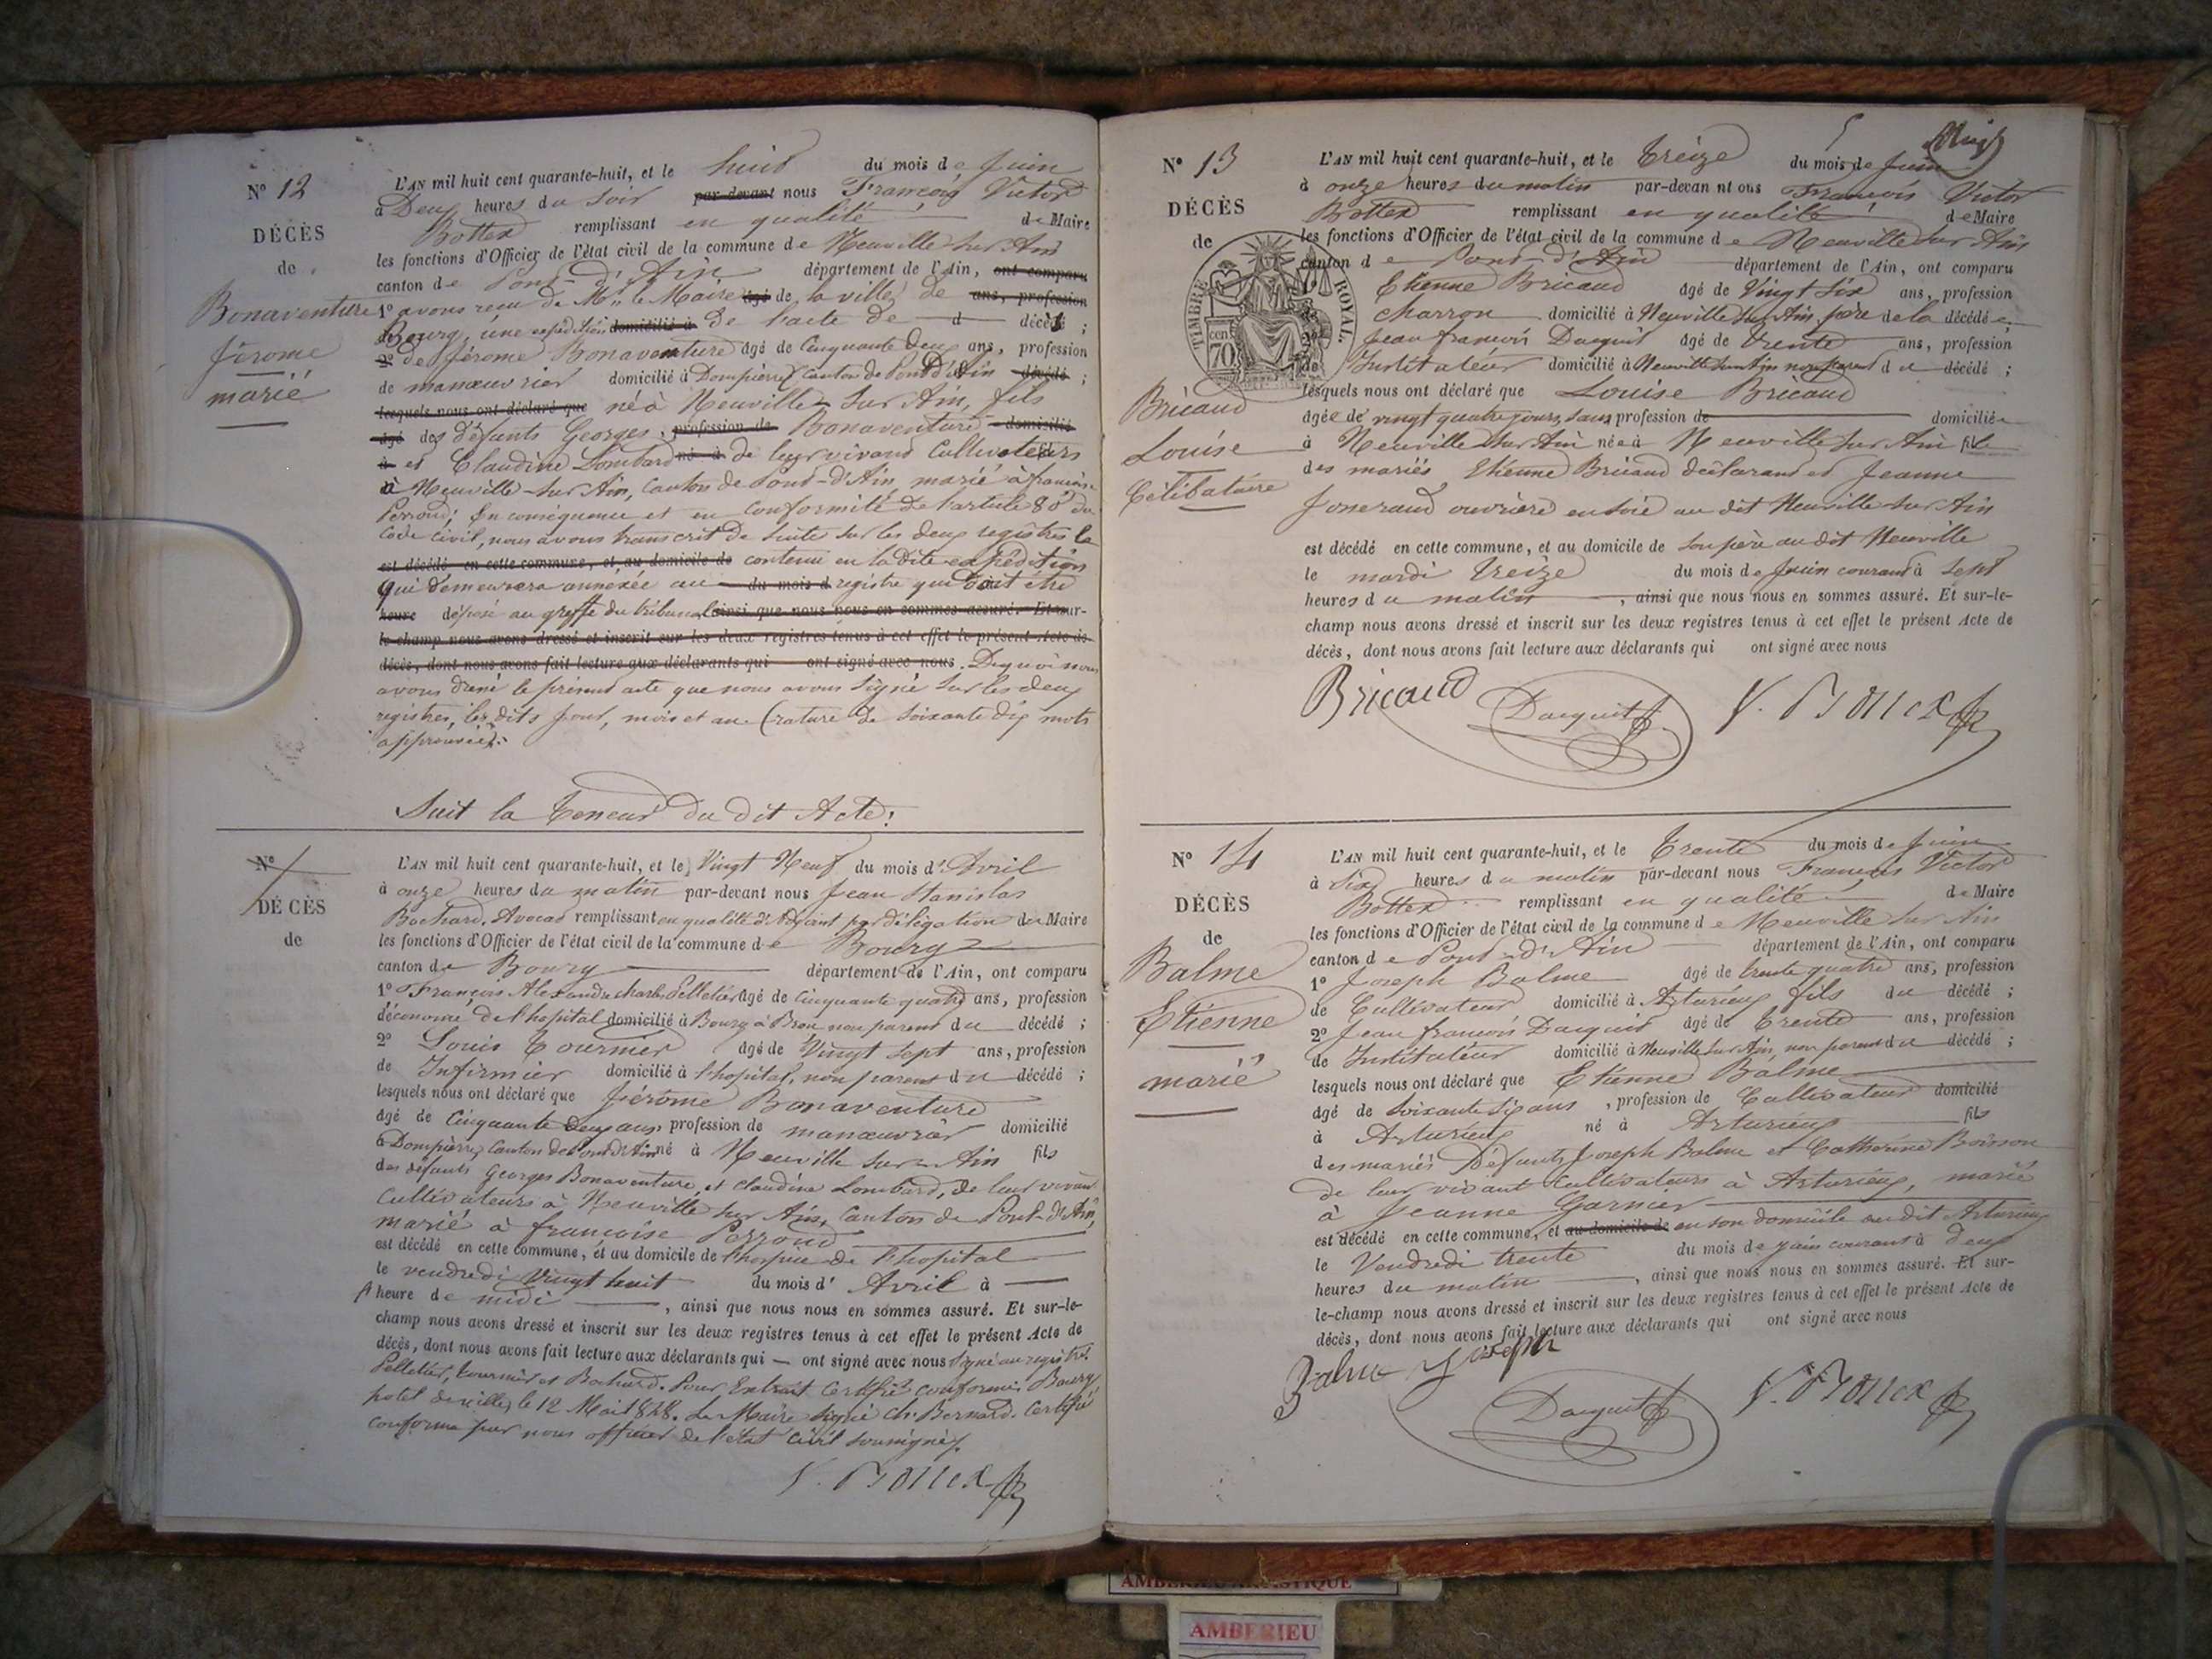 N° 12
DÉCÈS
de
Bonaventure
Jérome
marié
L'AN mil huit cent quarante-huit, et le huit du mois de Juin
à Deux heures du Soir par-devant nous François Victor
Bottex remplissant en qualité de Maire
les fonctions d'Officier de l'état civil de la commune de Neuville sur Ain
canton de Pont-d'Ain département de l'Ain, ont comparu
1° avons reçu de Mr le Maire agé de la ville de ans, profession
Bourg, une expédition domicilié à De l'acte de d décès ;
2° de Jérome Bonaventure âgé de Cinquante Deux ans, profession
de manœuvrier domicilié à Dompierre Canton de Pont d'Ain décédé ;
lesquels nous ont déclaré que né à Neuville sur Ain, fils
agé des défunts Georges profession de Bonaventure domicilié
à et Claudine Lombard né à de leur vivant Cultivateurs
à Neuville-sur Ain, Canton de Pont-d'Ain, marié à françoise
Perroud; En conséquence et en conformité de l'article 80 du
Code Civil, nous avons transcrit de suite sur les deux registres le
est décédé en cette commune, et au domicile de contenu en la dite expédition
qui demeurera annexée au du mois d registre qui doit être
heure déposé au greffe du tribunal ainsi que nous nous en sommes assuré. Et sur-
le-champ nous avons dressé et inscrit sur les deux registres tenus à cet effet le présent Acte de
décès, dont nous avons fait lecture aux déclarants qui ont signé avec nous. De quoi nous
avons dressé le présent acte que nous avons signé sur les deux
registres, les dits jour, mois et an (rature de soixante dix mots
approuvée).
Suit la teneur du dit Acte:
N°
DÉCÈS
de
L'AN mil huit cent quarante-huit, et le Vingt Neuf du mois d'Avril
à onze heures du matin par-devant nous Jean Stanislas
Bochard, Avocat remplissant en qualité d'Adjoint par délégation du Maire
les fonctions d'Officier de l'état civil de la commune de Bourg
canton de Bourg département de l'Ain, ont comparu
1° François Alexandre charles Pelletier âgé de Cinquante quatre ans, profession
d'économe de l'hopital domicilié à Bourg à Brou non parent du décédé ;
2° Louis Tournier âgé de Vingt Sept ans, profession
de Infirmier domicilié à l'hopital, non parent du décédé ;
lesquels nous ont déclaré que Jérôme Bonaventure
âgé de Cinquante Deux ans, profession de manœuvrier domicilié
à Dompierre, Canton de Pont d'Ain né à Neuville sur Ain fils
des défunts Georges Bonaventure et Claudine Lombard, de leur vivant
Cultivateurs à Neuville sur Ain, Canton de Pont-d'Ain,
marié à françoise Perroud
est décédé en cette commune, et au domicile de l'hospice de l'hopital
le vendredi Vingt huit du mois d' Avril à
heure de midi , ainsi que nous nous en sommes assuré. Et sur-le-
champ nous avons dressé et inscrit sur les deux registres tenus à cet effet le présent Acte de
décès, dont nous avons fait lecture aux déclarants qui — ont signé avec nous Signé au registre
Pelletier, Tournier et Bochard. Pour Extrait Certifié conforme. Bourg
hotel de ville, le 12 Mai 1848. Le Maire signé Ch. Bernard. Certifié
conforme par nous officier de l'état civil soussigné.
V. Bottex
N° 13
DÉCÈS
de
TIMBRE ROYAL
70 cen
Bricaud
Louise
Célibataire
L'AN mil huit cent quarante-huit, et le Treize du mois de Juin
à onze heures du matin par-devan nt ous François Victor
Bottex remplissant en qualité de Maire
les fonctions d'Officier de l'état civil de la commune de Neuville sur Ain
canton de Pont-d'Ain département de l'Ain, ont comparu
Etienne Bricaud âgé de Vingt Six ans, profession
charron domicilié à Neuville sur Ain, père de la décédée
2° Jean françois Dacquit âgé de trente ans, profession
de Instituteur domicilié à Neuville sur Ain non parent du décédé ;
lesquels nous ont déclaré que Louise Bricaud
âgée de vingt quatre jours, sans profession de domiciliée
à Neuville sur Ain née à Neuville sur Ain fille
des mariés Etienne Bricaud déclarant et Jeanne
ouvrière en soie au dit Neuville-sur Ain
est décédé en cette commune, et au domicile de son père au dit Neuville
le mardi treize du mois de Juin courant à Sept
heures du matin , ainsi que nous nous en sommes assuré. Et sur-le-
champ nous avons dressé et inscrit sur les deux registres tenus à cet effet le présent Acte de
décès, dont nous avons fait lecture aux déclarants qui ont signé avec nous
Bricaud Dacquit V. Bottex
N° 14
DÉCÈS
de
Balme
Etienne
marié
L'AN mil huit cent quarante-huit, et le Trente du mois de Juin
à Six heures du matin par-devant nous François Victor
Bottex remplissant en qualité de Maire
les fonctions d'Officier de l'état civil de la commune de Neuville sur Ain
canton de Pont-d'Ain département de l'Ain, ont comparu
1° Joseph Balme âgé de trente quatre ans, profession
de Cultivateur domicilié à Arturieux fils du décédé ;
2° Jean françois Dacquit âgé de trente ans, profession
de Instituteur domicilié à Neuville sur Ain, non parent du décédé ;
lesquels nous ont déclaré que Etienne Balme
âgé de soixante six ans , profession de Cultivateur domicilié
à Arturieux né à Arturieux fils
des mariés Défunts Joseph Balme et Catherine Boisson
de leur vivant Cultivateurs à Arturieux, marié
à Jeanne Garnier
est décédé en cette commune, et au domicile de en son domicile au dit Arturieux
le Vendredi trente du mois de juin courant à deux
heures du matin , ainsi que nous nous en sommes assuré. Et sur-
le-champ nous avons dressé et inscrit sur les deux registres tenus à cet effet le présent Acte de
décès, dont nous avons fait lecture aux déclarants qui ont signé avec nous
Balme Joseph
Dacquit V. Bottex
AMBERIEU